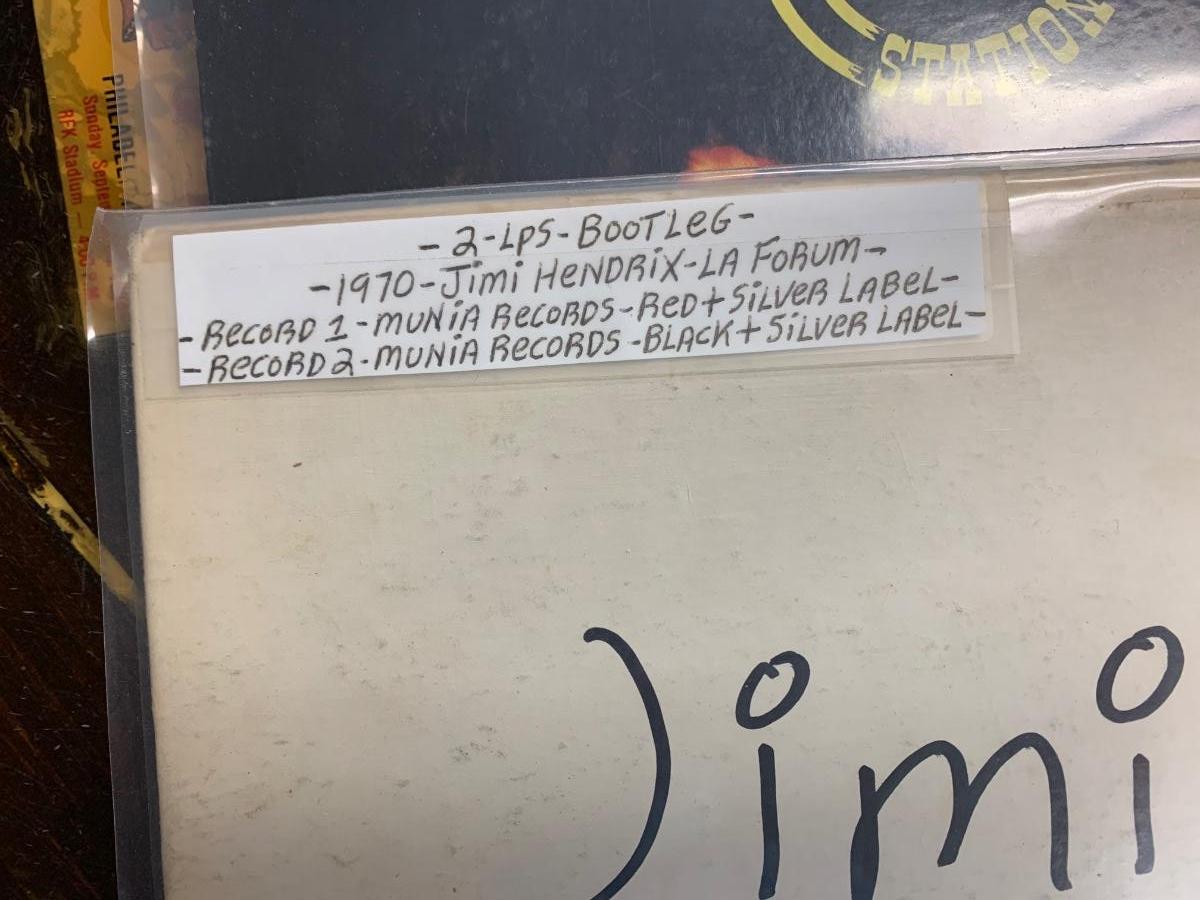 STATION
PHILADEL
Sunday, Septem
RFK Stadium — 4:00 P.M.
-2-LPS-BOOTLEG-
-1970-JiMi HENDRiX-LA FORUM-
-RECORD 1-MUNiA RECORDS-RED+SiLVER LABEL-
-RECORD 2-MUNiA RECORDS-BLACK+SiLVER LABEL-
Jimi